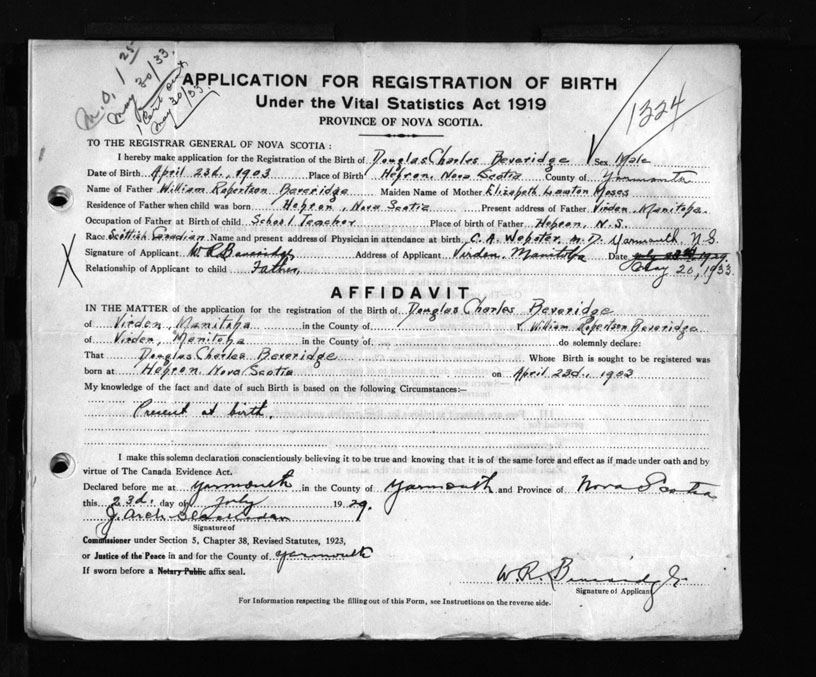 M.O. 1 25
May 30/33.
1 Cert
May 30/33.
1324
APPLICATION FOR REGISTRATION OF BIRTH
Under the Vital Statistics Act 1919
PROVINCE OF NOVA SCOTIA.
TO THE REGISTRAR GENERAL OF NOVA SCOTIA :
I hereby make application for the Registration of the Birth of Douglas Charles Beveridge Sex Male
Date of Birth April 23d, 1903 Place of Birth Hebron, Nova Scotia County of Yarmouth
Name of Father William Robertson Beveridge Maiden Name of Mother Elizabeth Lawton Moses
Residence of Father when child was born Hebron, Nova Scotia Present address of Father Virden Manitoba.
Occupation of Father at Birth of child School Teacher Place of birth of Father Hebron, N.S.
Race Scottish Canadian Name and present address of Physician in attendance at birth C. A. Webster M.D. Yarmouth, N.S.
Signature of Applicant W R Beveridge Address of Applicant Virden, Manitoba Date July 23rd 1929
May 20, 1933
Relationship of Applicant to child Father,
AFFIDAVIT
IN THE MATTER of the application for the registration of the Birth of Douglas Charles Beveridge
of Virden, Manitoba in the County of I, William Robertson Beveridge
of Virden, Manitoba in the County of do solemnly declare:
That Douglas Charles Beveridge Whose Birth is sought to be registered was
born at Hebron, Nova Scotia on April 23d., 1903
My knowledge of the fact and date of such Birth is based on the following Circumstances:—
Present at birth.
I make this solemn declaration conscientiously believing it to be true and knowing that it is of the same force and effect as if made under oath and by
virtue of The Canada Evidence Act.
Declared before me at Yarmouth in the County of Yarmouth and Province of Nova Scotia
this 23d. day of July 1929.
J. Arch
Signature of
Commissioner under Section 5, Chapter 38, Revised Statutes, 1923,
or Justice of the Peace in and for the County of Yarmouth
If sworn before a Notary Public affix seal.
W. R. Beveridge
Signature of Applicant
For Information respecting the filling out of this Form, see Instructions on the reverse side.